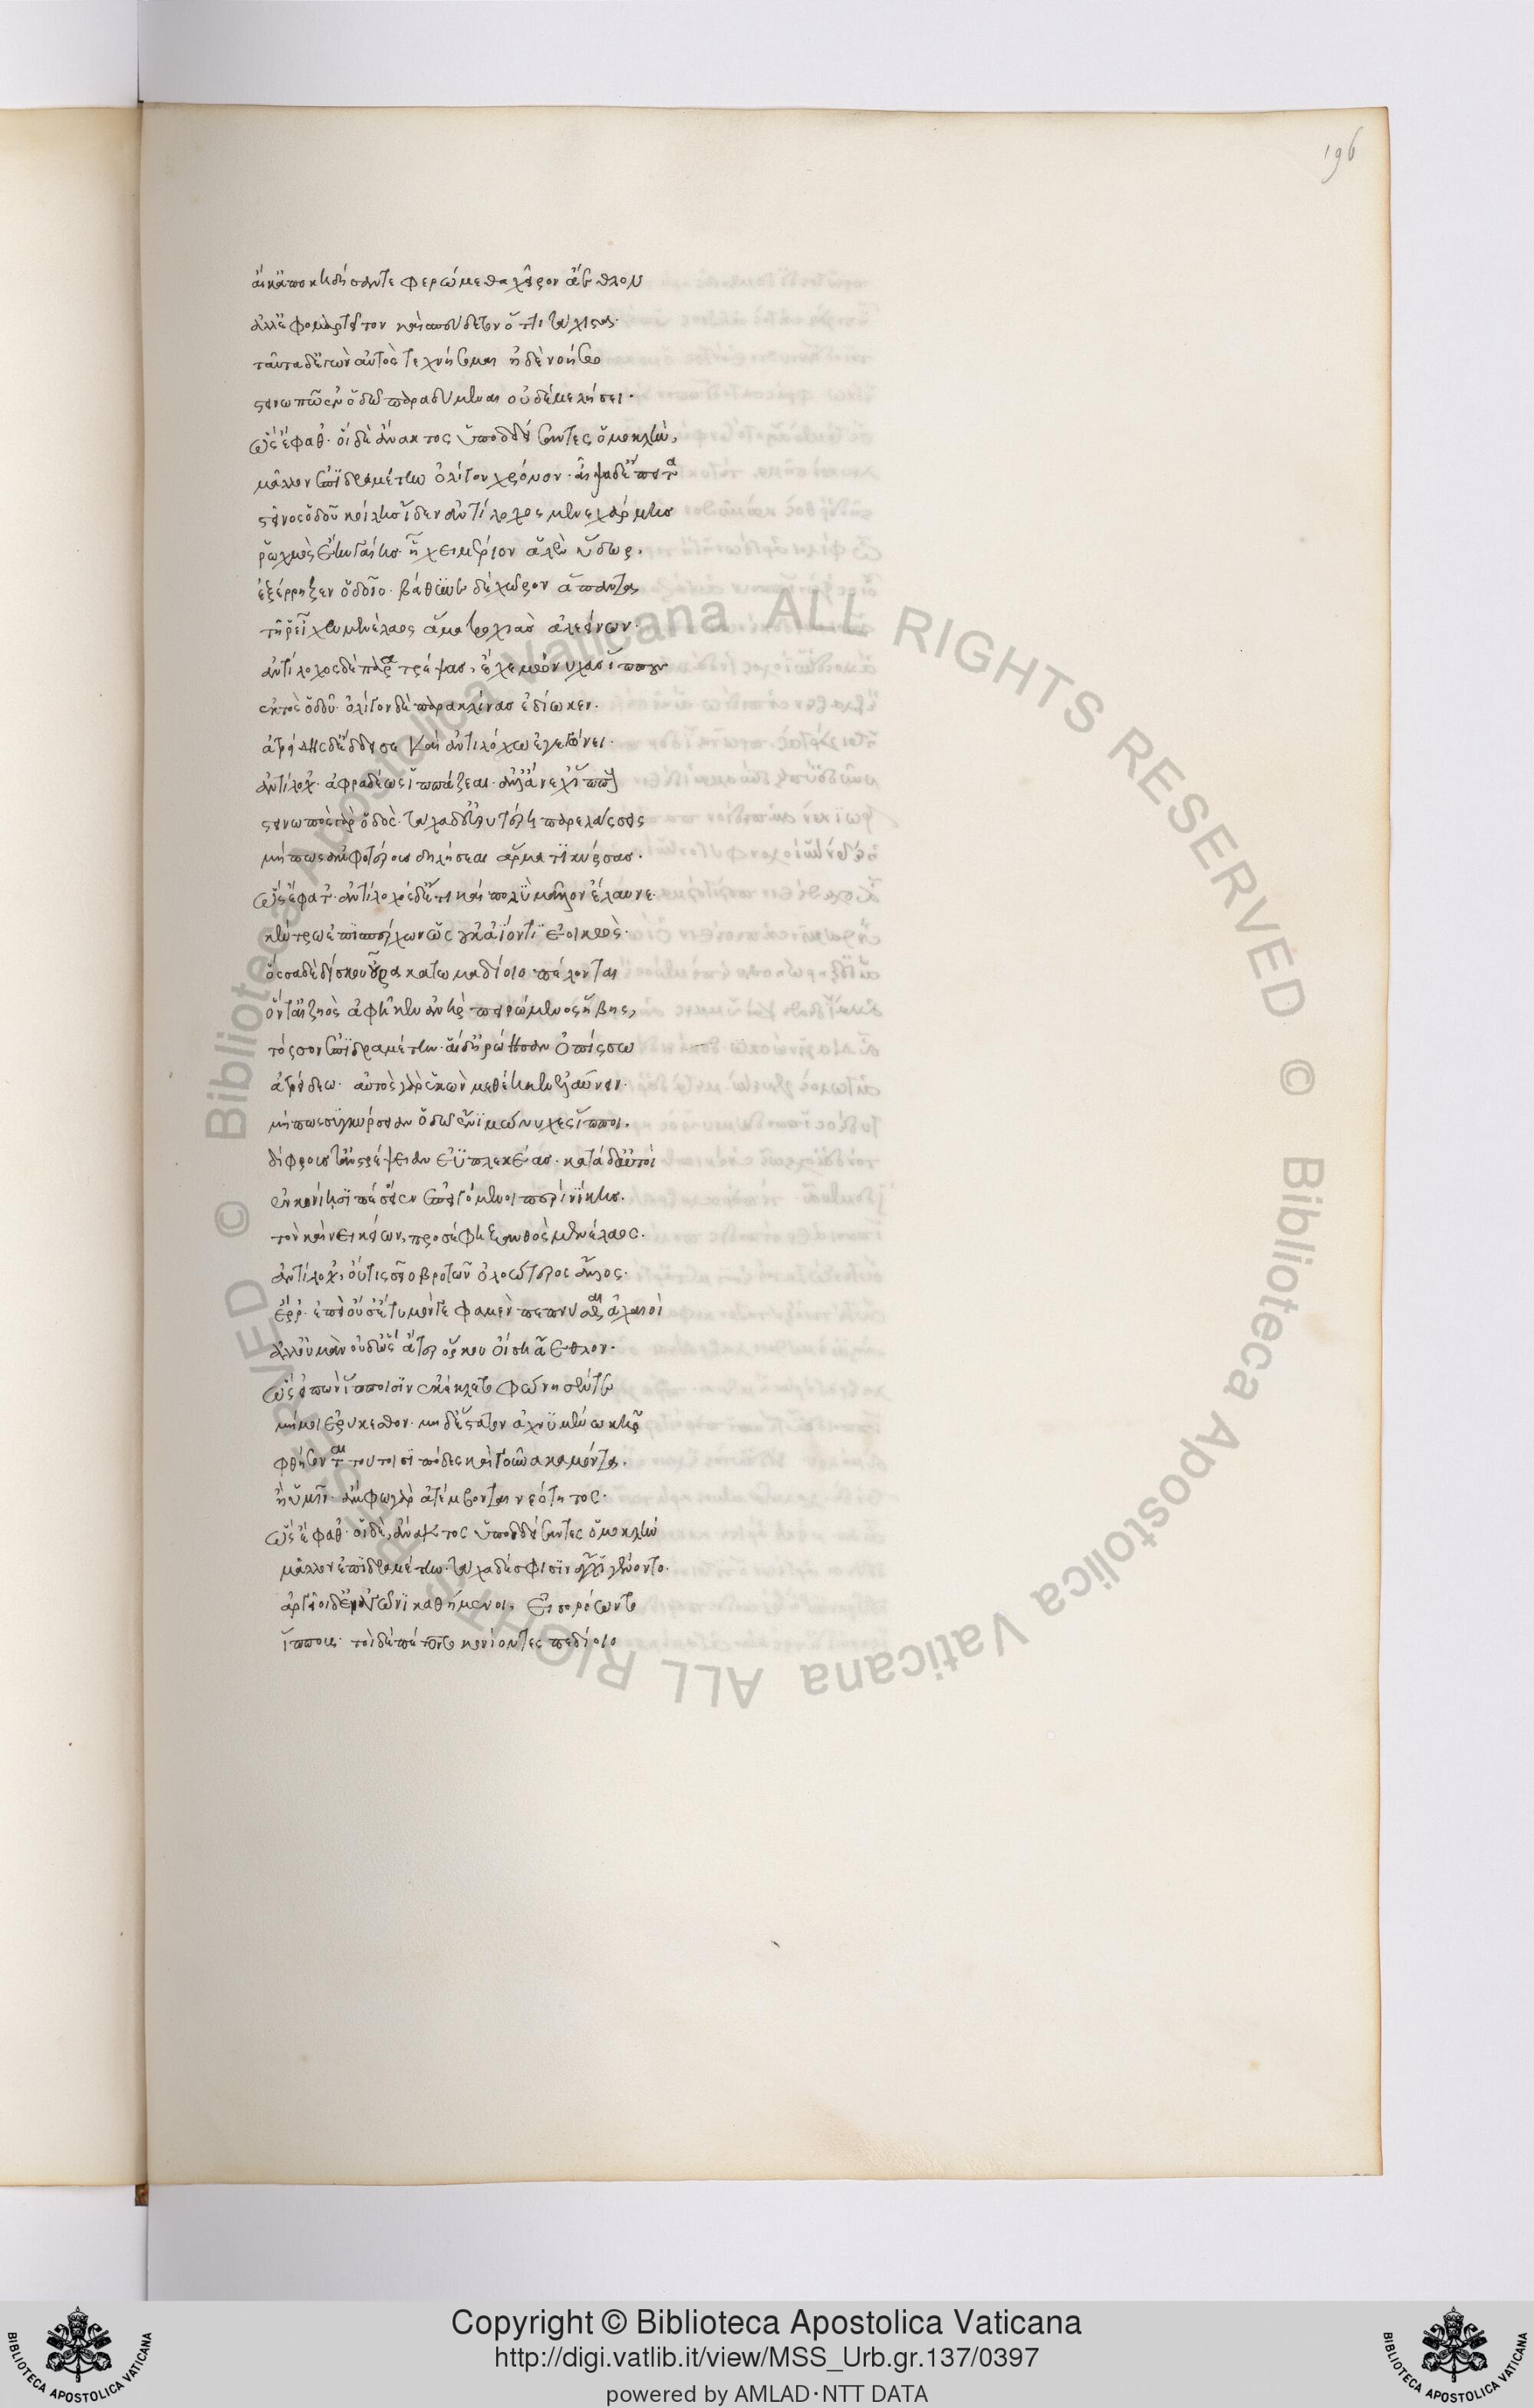 196
αἴ κ' ἀποκηδήσαντε φερώμεθα χεῖρον ἄεθλον
ἀλλ' ἐφομαρτεῖτον καὶ σπεύδετον ὅττι τάχιστα.
ταῦτα δ' ἐγὼν αὐτὸς τεχνήσομαι ἠδὲ νοήσω
στεινωπῷ ἐν ὁδῷ παραδύμεναι οὐδέ με λήσει.
ὣς ἔφαθ. οἱ δὲ ἄνακτος ὑποδδείσαντες ὁμοκλὴν,
μᾶλλον ἐπιδραμέτην ὀλίγον χρόνον. αἶψα δ' ἔπειτα
στεῖνος ὁδοῦ κοίλης ἴδεν ἀντίλοχος μενεχάρμης
ῥωχμὸς ἔην γαίης. ᾗ χειμέριον ἀλὲν ὕδωρ.
ἐξέρρηξεν ὁδοῖο. βάθυνε δὲ χῶρον ἅπαντα,
τῇ ῥ' εἶχεν μενέλαος ἁματροχιὰς ἀλεείνων.
ἀντίλοχος δὲ παρατρέψας, ἔχε μώνυχας ἵππους
ἐκτὸς ὁδοῦ. ὀλίγον δὲ παρακλίνας ἐδίωκεν.
ἀτρείδης δ' ἔδδεισε καὶ ἀντιλόχω ἐγεγώνει.
ἀντίλοχ. ἀφραδέως ἱππάζεαι. ἀλλ' ἄνεχ' ἵππους
στεινωπὸς γὰρ ὁδὸς. τάχα δ' εὐρυτέρη παρελάσσεις
μή πως ἀμφοτέρους δηλήσεαι ἅρματι κύρσας.
ὣς ἔφατ. ἀντίλοχος δ' ἔτι καὶ πολὺ μᾶλλον ἔλαυνε.
κέντρω ἐπισπέρχων ὡς οὐκ ἀΐοντι ἐοικὼς.
ὅσσα δὲ δίσκου οὖρα κατωμαδίοιο πέλονται
ὅν τ' αἰζηὸς ἀφῆκεν ἀνὴρ πειρώμενος ἥβης,
τόσσον ἐπιδραμέτην. αἱ δ' ἠρώησαν ὀπίσσω
ἀτρείδεω. αὐτὸς γὰρ ἑκὼν μεθέηκεν ἐλαύνειν.
μή πως συγκύρσειαν ὁδῷ ἔνι μώνυχες ἵπποι.
δίφρους τ' ἀνστρέψειαν ἐϋπλεκέας. κατὰ δ' αὐτοὶ
ἐν κονίῃσι πέσοιεν ἐπειγόμενοι περὶ νίκης.
τὸν καὶ νεικείων, προσέφη ξανθὸς μενέλαος.
ἀντίλοχ, οὔτις σεῖο βροτῶν ὀλοώτερος ἄλλος.
ἔρρ. ἐπεὶ οὔ σ' ἔτυμόν γε φαμὲν πεπνῦσθαι ἀχαιοὶ
ἀλλ' οὐ μὰν οὐδ' ὣς ἄτερ ὅρκου οἴσῃ ἄεθλον.
ὣς εἰπὼν ἵπποισιν ἐκέκλετο φώνησέν τε
μή μοι ἐρύκεσθον. μηδ' ἕστατον ἀχνυμένω κῆρ
φθήσονται τούτοισι πόδες καὶ γοῦνα καμόντα.
ἢ ὑμῖν. ἄμφω γὰρ ἀτέμβονται νεότητος.
ὣς ἔφαθ. οἱ δὲ, ἄνακτος ὑποδδείσαντες ὁμοκλὴν
μᾶλλον ἐπιδραμέτην. τάχα δέ σφισιν ἄγχι γένοντο.
ἀργεῖοι δ' ἐν ἀγῶνι καθήμενοι, εἰσορόωντο
ἵππους. τοὶ δὲ πέτοντο κονίοντες πεδίοιο
Copyright © Biblioteca Apostolica Vaticana
http://digi.vatlib.it/view/MSS_Urb.gr.137/0397
powered by AMLAD·NTT DATA
BIBLIOTECA APOSTOLICA VATICANA
BIBLIOTECA APOSTOLICA VATICANA
© Biblioteca Apostolica Vaticana ALL RIGHTS RESERVED
© Biblioteca Apostolica Vaticana ALL RIGHTS RESERVED